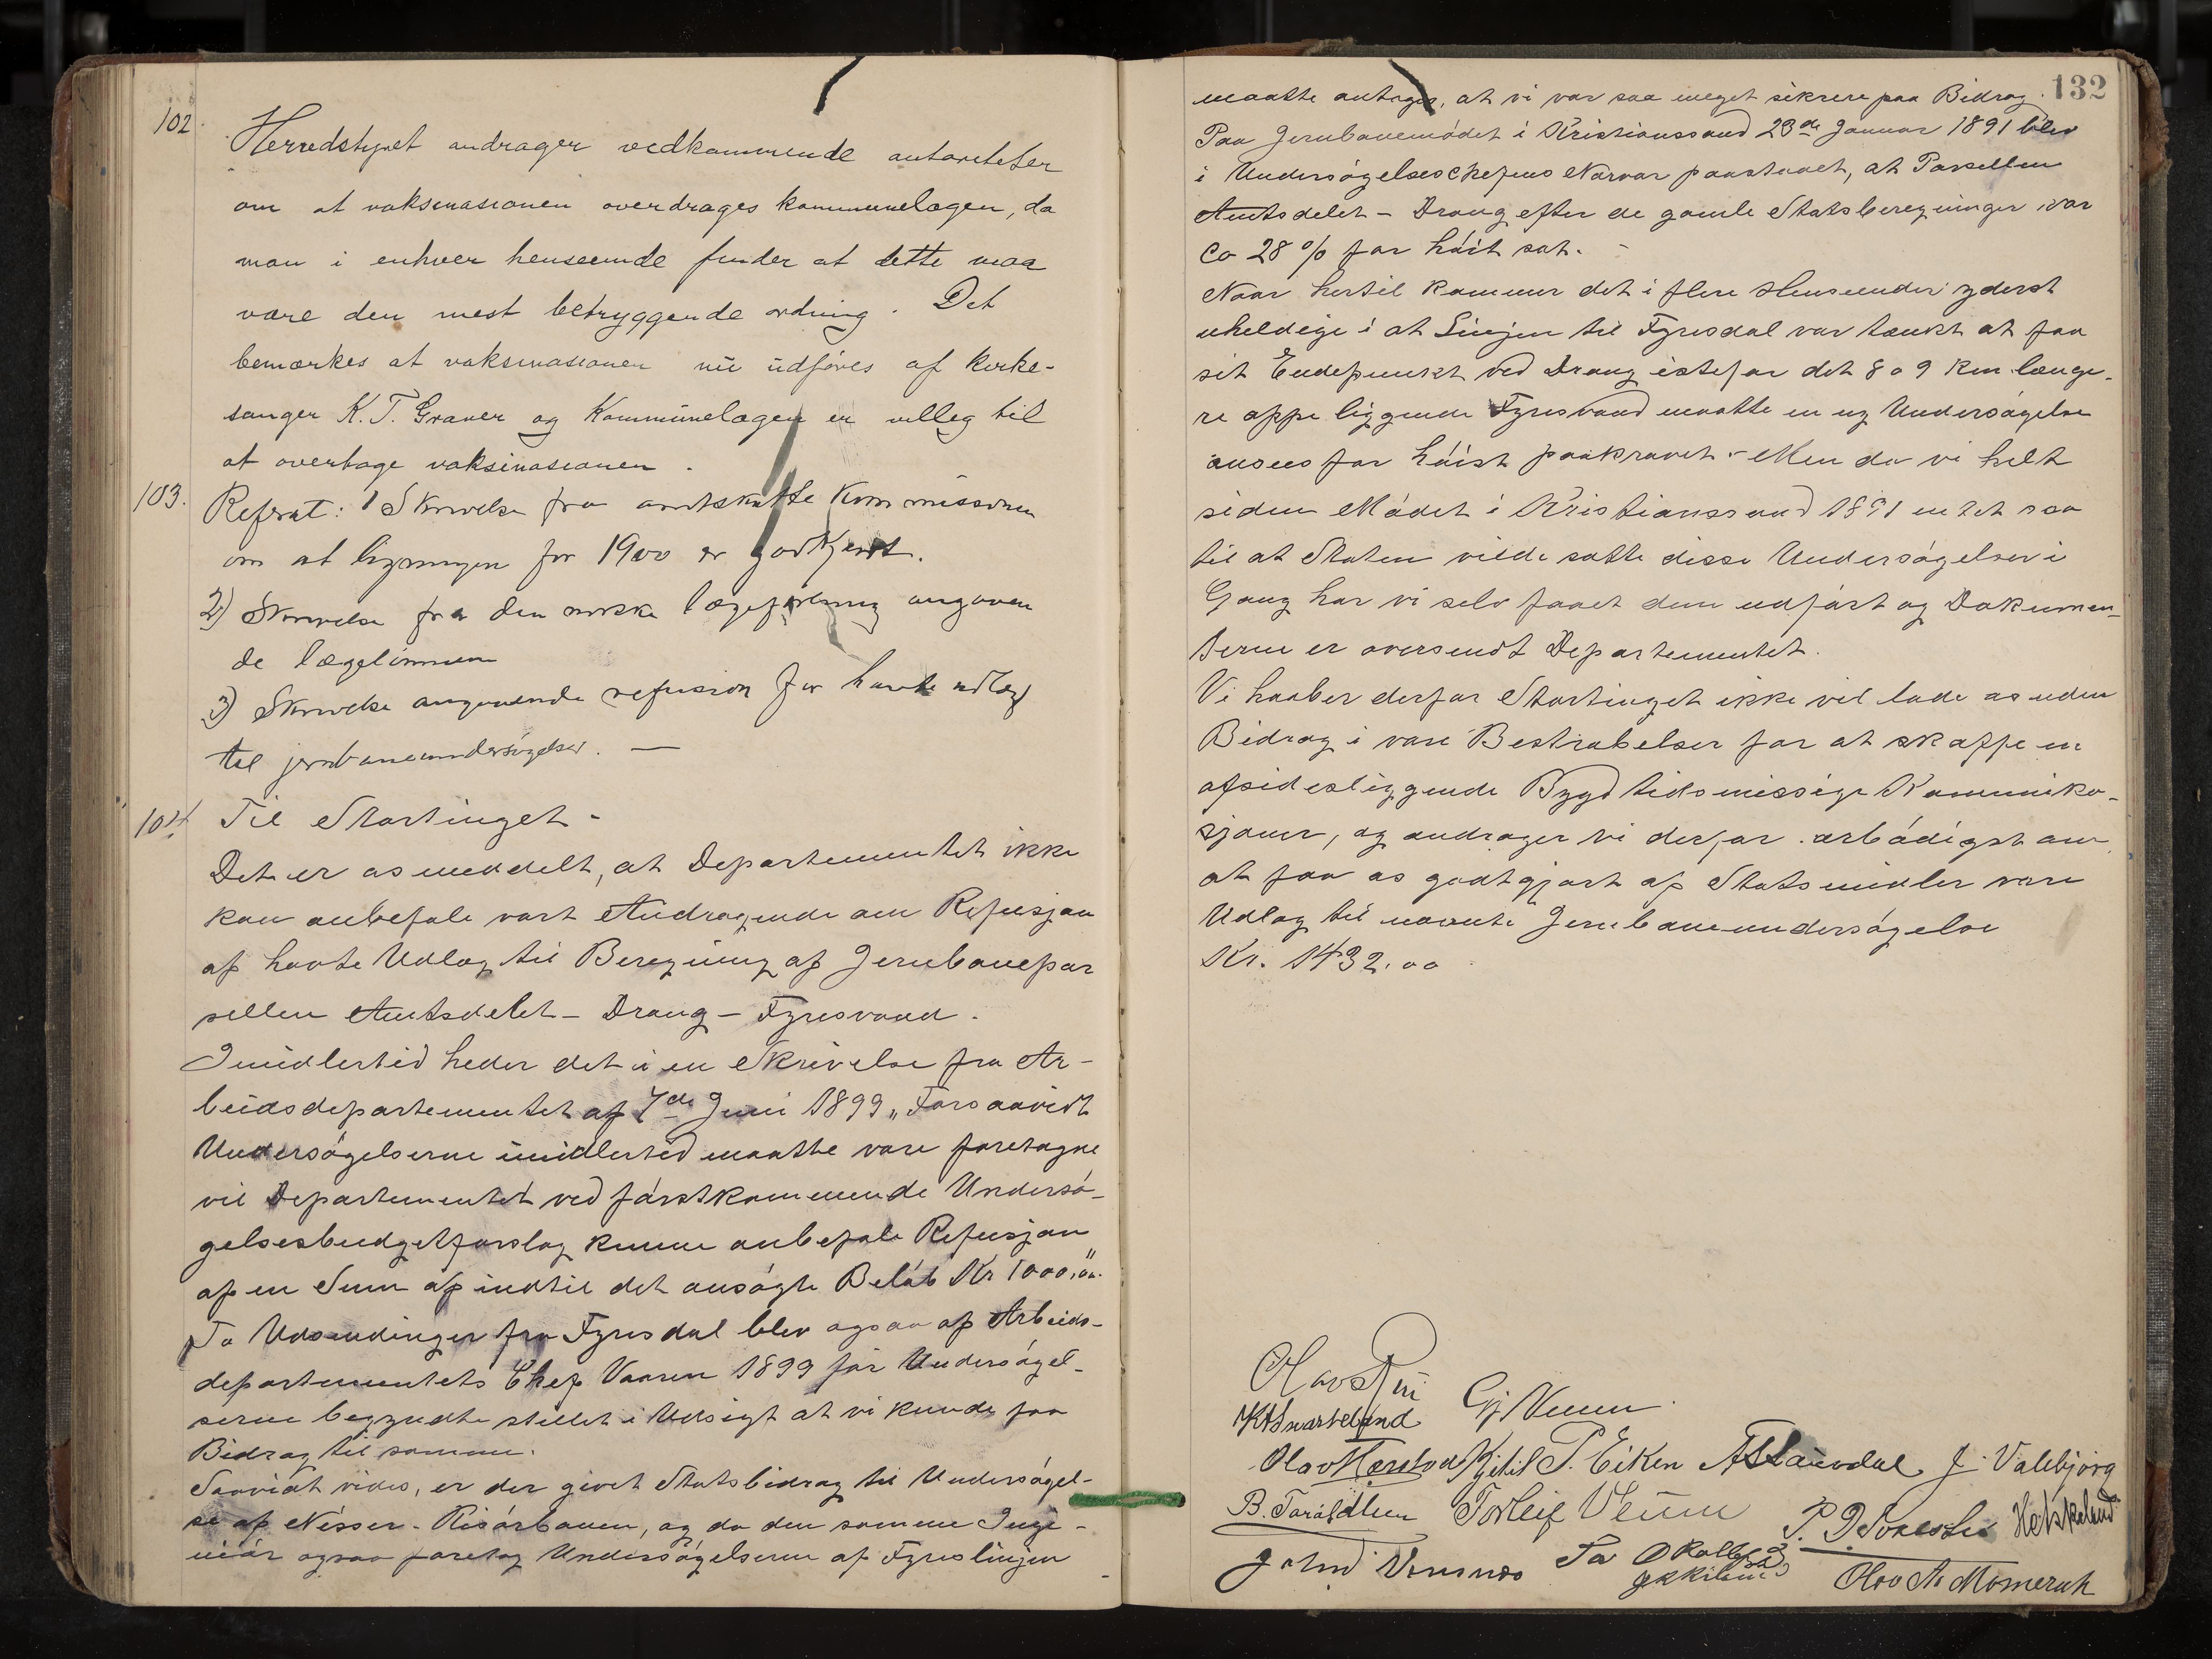 102.
Herredstyret andrager vedkommende autoriteter
om at vaksinasionen overdrages kommunelægen, da
man i enhver henseende finder at dette maa
være den mest betryggende ordning. Det
bemærkes at vaksinasionen nu udføres af kirke-
sanger K. T. Graver og Kommunelægen er villig til
at overtage vaksinasionen.
103. Referat: 1 Skrivelse fra amtskatte kommissionen
om at ligningen for 1900 er godkjent.
2) Skrivelse fra den norske lægeforening angaaen
de lægelønnen
3) Skrivelse angaaende refusion for havte udlæg
til jernbaneundersøgelser. —
104. Til Stortinget.
Det er os meddelt, at Departementet ikke
kan anbefale vort Andragende om Refusjon
af havte Udlæg til Beregning af Jernbanepar
sellen Amtsdelet - Drang - Fyresvand.
Imidlertid heder det i en Skrivelse fra Ar-
beidsdepartementet af 7de Juni 1899 „Forsaavidt
Undersøgelserne imidlertid maatte være foretagne
vil Departementet ved førstkommende Undersø-
gelsesbudgetforslag kunne anbefale Refusjon
af en Sum af indtil det ansøgte Beløb Kr 1000,00."
To Udsendinger fra Fyresdal blev ogsaa af Arbeids-
departementets Chef Vaaren 1899 før Undersøgel-
serne begyndte stillet i Udsigt at vi kunde faa
Bidrag til samme.
Saavidt vides, er der givet Statsbidrag til Undersøgel-
se af Nisser - Risørbanen, og da den samme Inge-
niør ogsaa foretog Undersøgelserne af Fyreslinjen
132
maatte antages, at vi var saa meget sikrere paa Bidrag.
Paa Jernbanemødet i Kristianssand 23de Januar 1891 blev
i Undersøgelseschefens Nærvær paastaaet, at Parsellen
Amtsdelet - Drang efter de gamle Statsberegninger var
ca 28 % for høit sat. -
Naar hertil kommer det i flere Henseender yderst
uheldige i at Linjen til Fyresdal var tænkt at faa
sit Endepunkt ved Drang istefor det 8 a 9 Km. længe-
re oppe liggende Fyresvand maatte en ny Undersøgelse
ansees for høist paakrævet. - Men da vi helt
siden Mødet i Kristianssand 1891 intet saa
til at Staten vilde sætte disse Undersøgelser i
Gang har vi selv faaet dem udført og Dokumen-
terne er oversendt Departementet.
Vi haaber derfor Stortinget ikke vil lade os uden
Bidrag i vare Bestræbelser for at skaffe en
afsidesliggende Bygd tidsmessige Kommunika-
sjoner, og andrager vi derfor ærbødigst om
at faa os godtgjort af Statsmidler vare
Udlæg til nævnte Jernbaneundersøgelse
Kr. 1432.00
Gj Veum
K H Svarteland
Kjetil T. Eiken J. Valebjørg
Torleif Veum